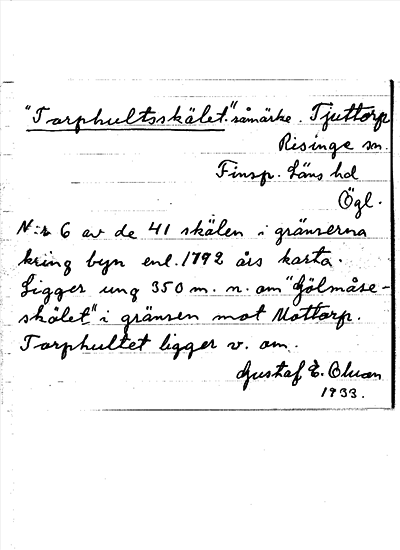 "Torphultsskälet." råmärke. Tjuttorp
Risinge sn.
Finsp. Läns hd
Ögl.
N:r 6 av de 41 skälen i gränserna
kring byn enl. 1792 års karta.
Ligger ung 350 m. n. om "Gölmåse-
skälet" i gränsen mot Mottorp.
Torphultet ligger v. om.
Gustaf E.
1933.